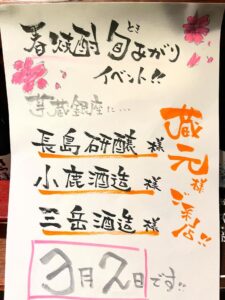 春焼酎 旬あがり
とき
イベント!!
蔵銀座に…
長島研醸 様
小鹿酒造 様
三岳酒造 様
蔵元様
ご来店!!
3月2日です!!